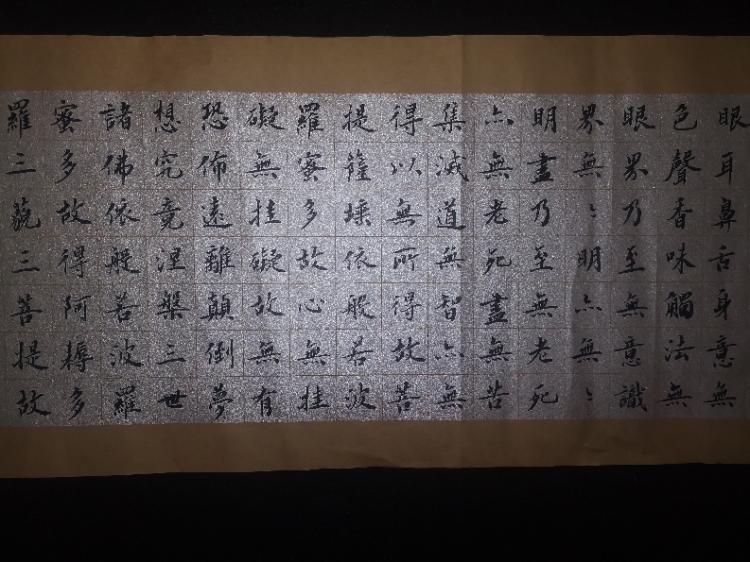 眼耳鼻舌身意無
色聲香味觸法無
眼界乃至無意識
界無〻明亦無〻
明盡乃至無老死
亦無老死盡無苦
集滅道無智亦無
得以無所得故菩
提薩埵依般若波
羅蜜多故心無挂
礙無挂礙故無有
恐佈遠離顛倒夢
想究竟涅槃三世
諸佛依般若波羅
蜜多故得阿耨多
羅三藐三菩提故